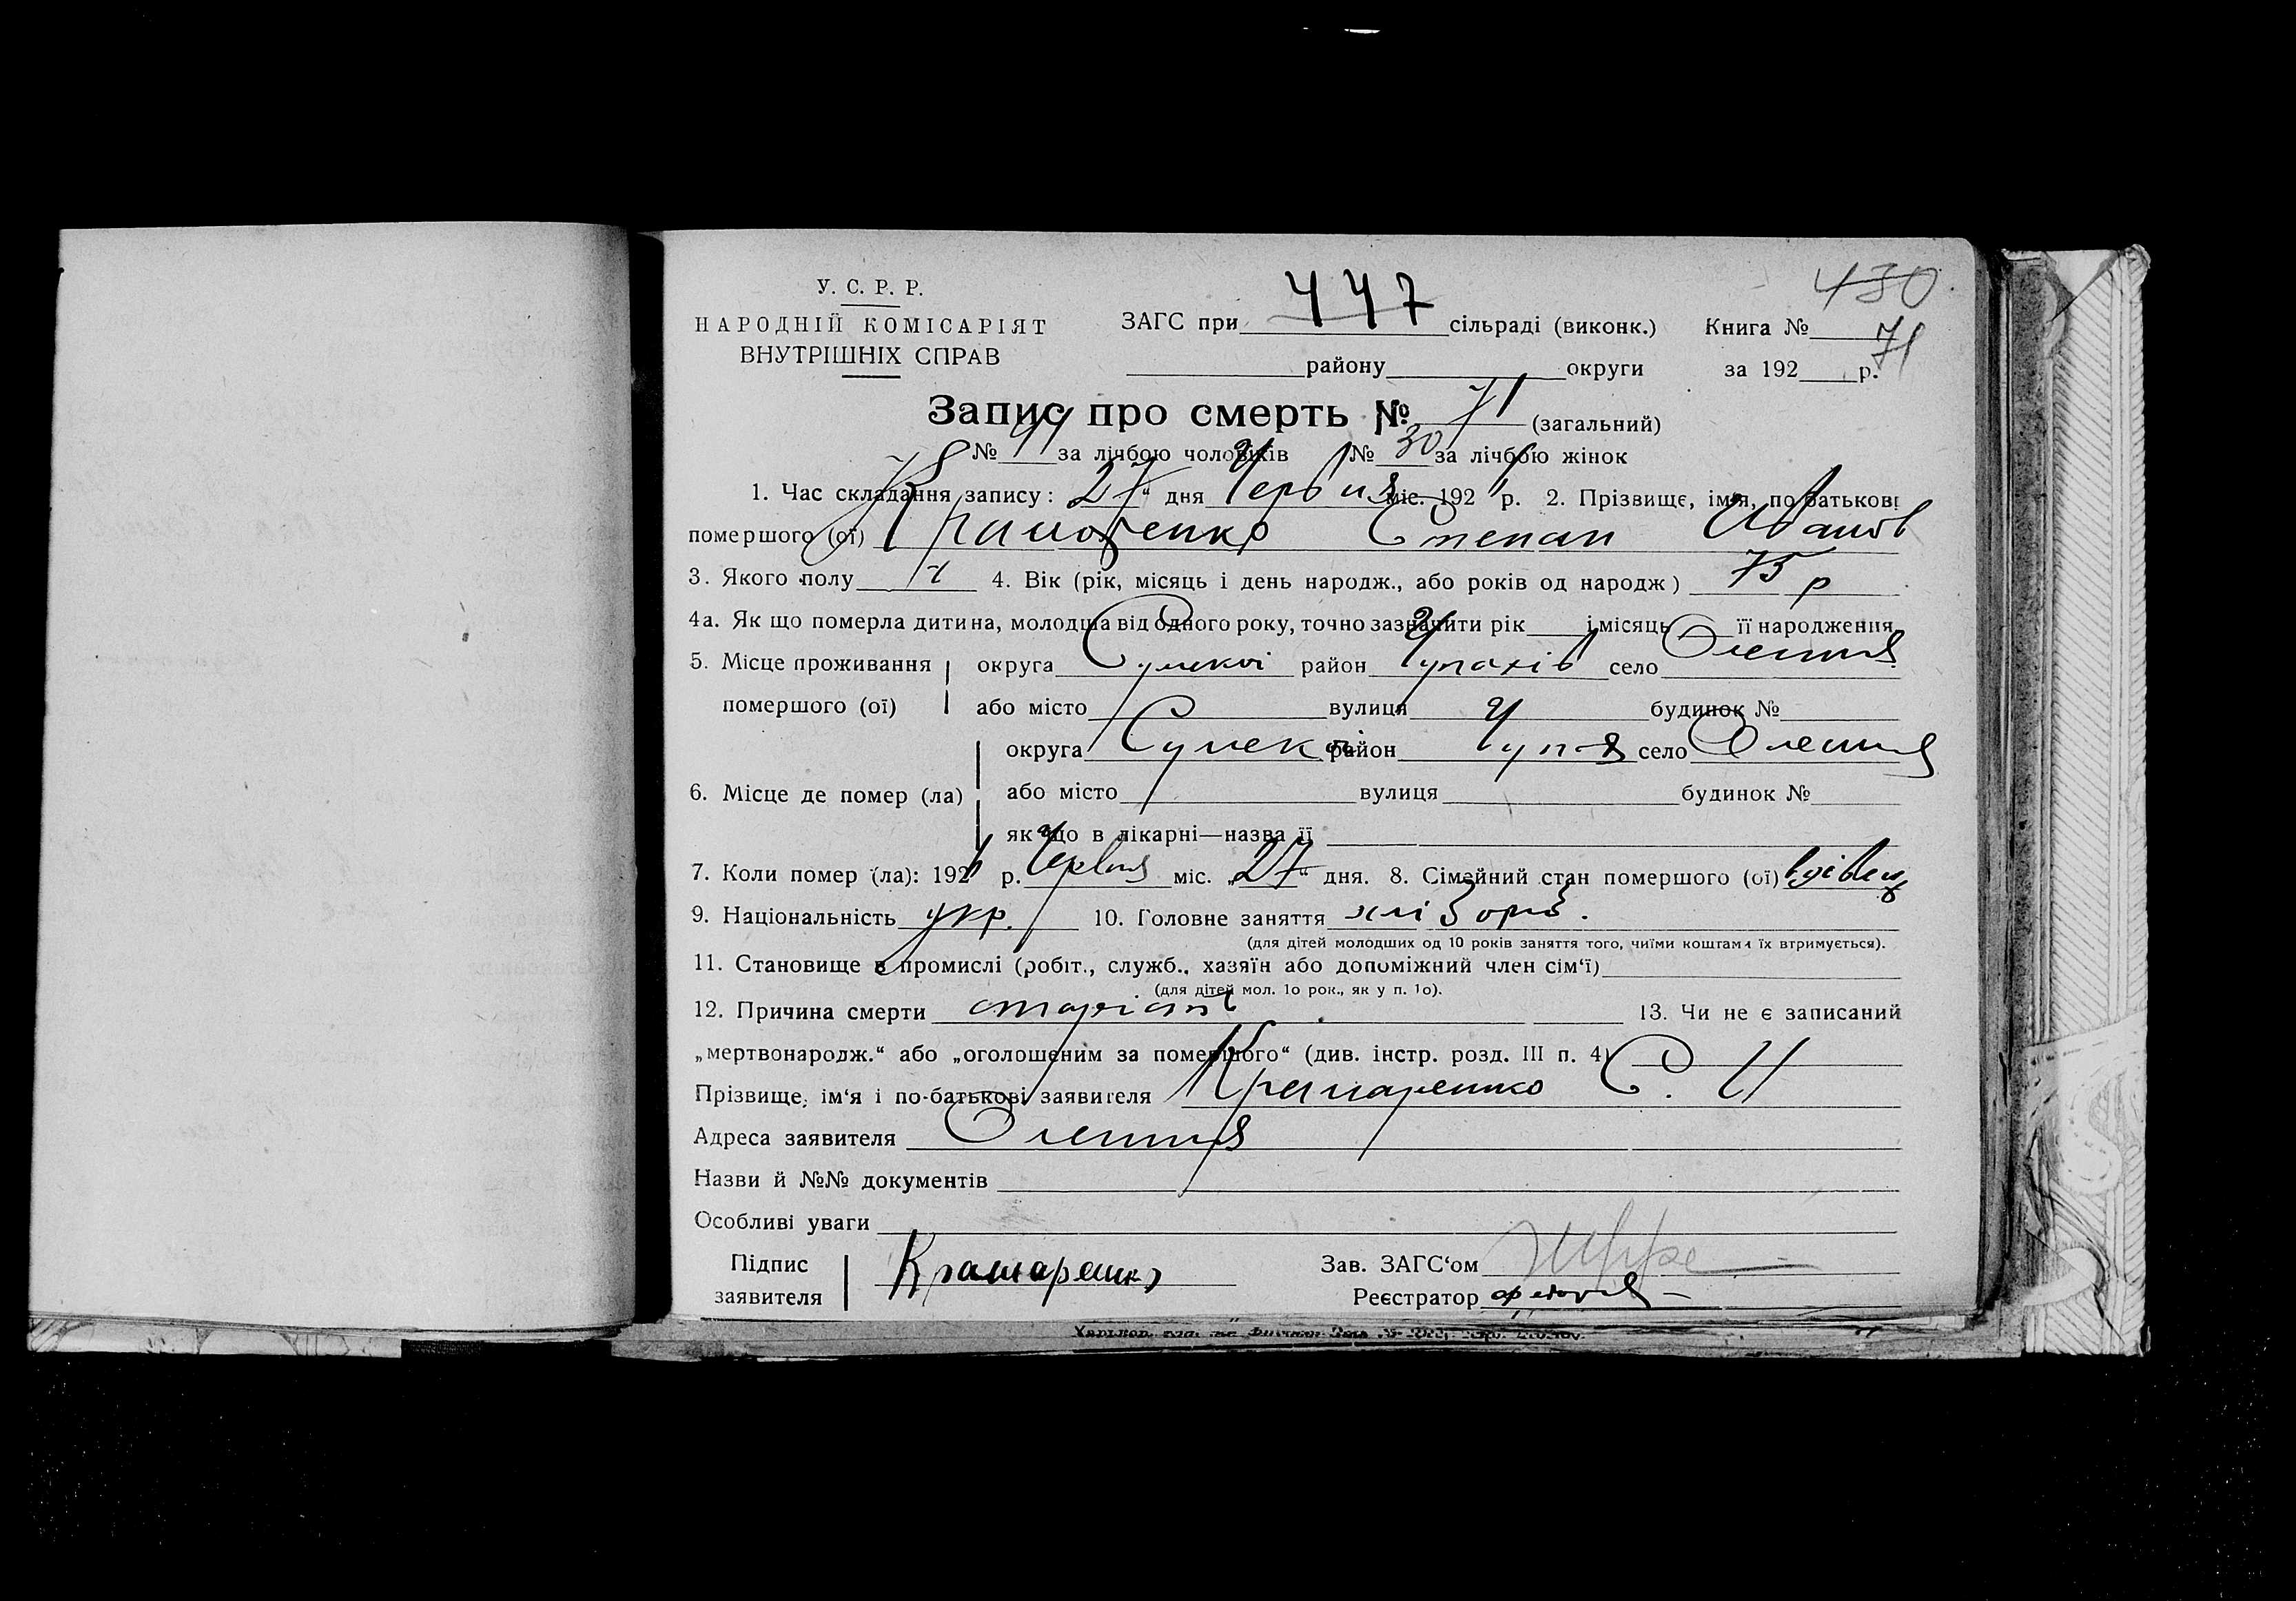 430
У. С. Р. Р.
НАРОДНІЙ КОМІСАРІЯТ
ВНУТРІШНІХ СПРАВ
ЗАГС при 447 сільраді (виконк.) Книга № 71
району округи за 192 р.
Запис про смерть № 71 (загальний)
№ 41 за лічбою чоловіків № 30 за лічбою жінок
1. Час складання запису: 27 " дня Червня міс. 192 р. 2. Прізвище, імя, по батькові
помершого (ої) Крамаренко Степан Иванов
3. Якого полу ч 4. Вік (рік, місяць і день народж., або років од народж) 75 р
4а. Як що померла дитина, молодша від одного року, точно зазначити рік і місяць її народження
5. Місце проживання округа Сумскої район Чупахів село Олешня
помершого (ої) або місто вулиця будинок №
округа Сумскої район село Олешня
6. Місце де помер (ла) або місто вулиця будинок №
як що в лікарні—назва її
7. Коли помер (ла): 192 р. Червня міс. „27" дня. 8. Сімейний стан помершого (ої) вдівець
9. Національність укр. 10. Головне заняття хлібороб.
(для дітей молодших од 10 років заняття того, чиїми коштами їх втримується).
11. Становище в промислі (робіт., служб., хазяїн або допоміжний член сім'ї)
(для дітей мол. 10 рок., як у п. 10).
12. Причина смерти старість 13. Чи не є записаний
„мертвонародж." або „оголошеним за померлого" (див. інстр. розд. III п. 4)
Прізвище, ім'я і по-батькові заявителя Крамаренко С. И
Адреса заявителя Олешня
Назви й №№ документів
Особливі уваги
Підпис заявителя Крамаренко Зав. ЗАГС'ом
Реєстратор